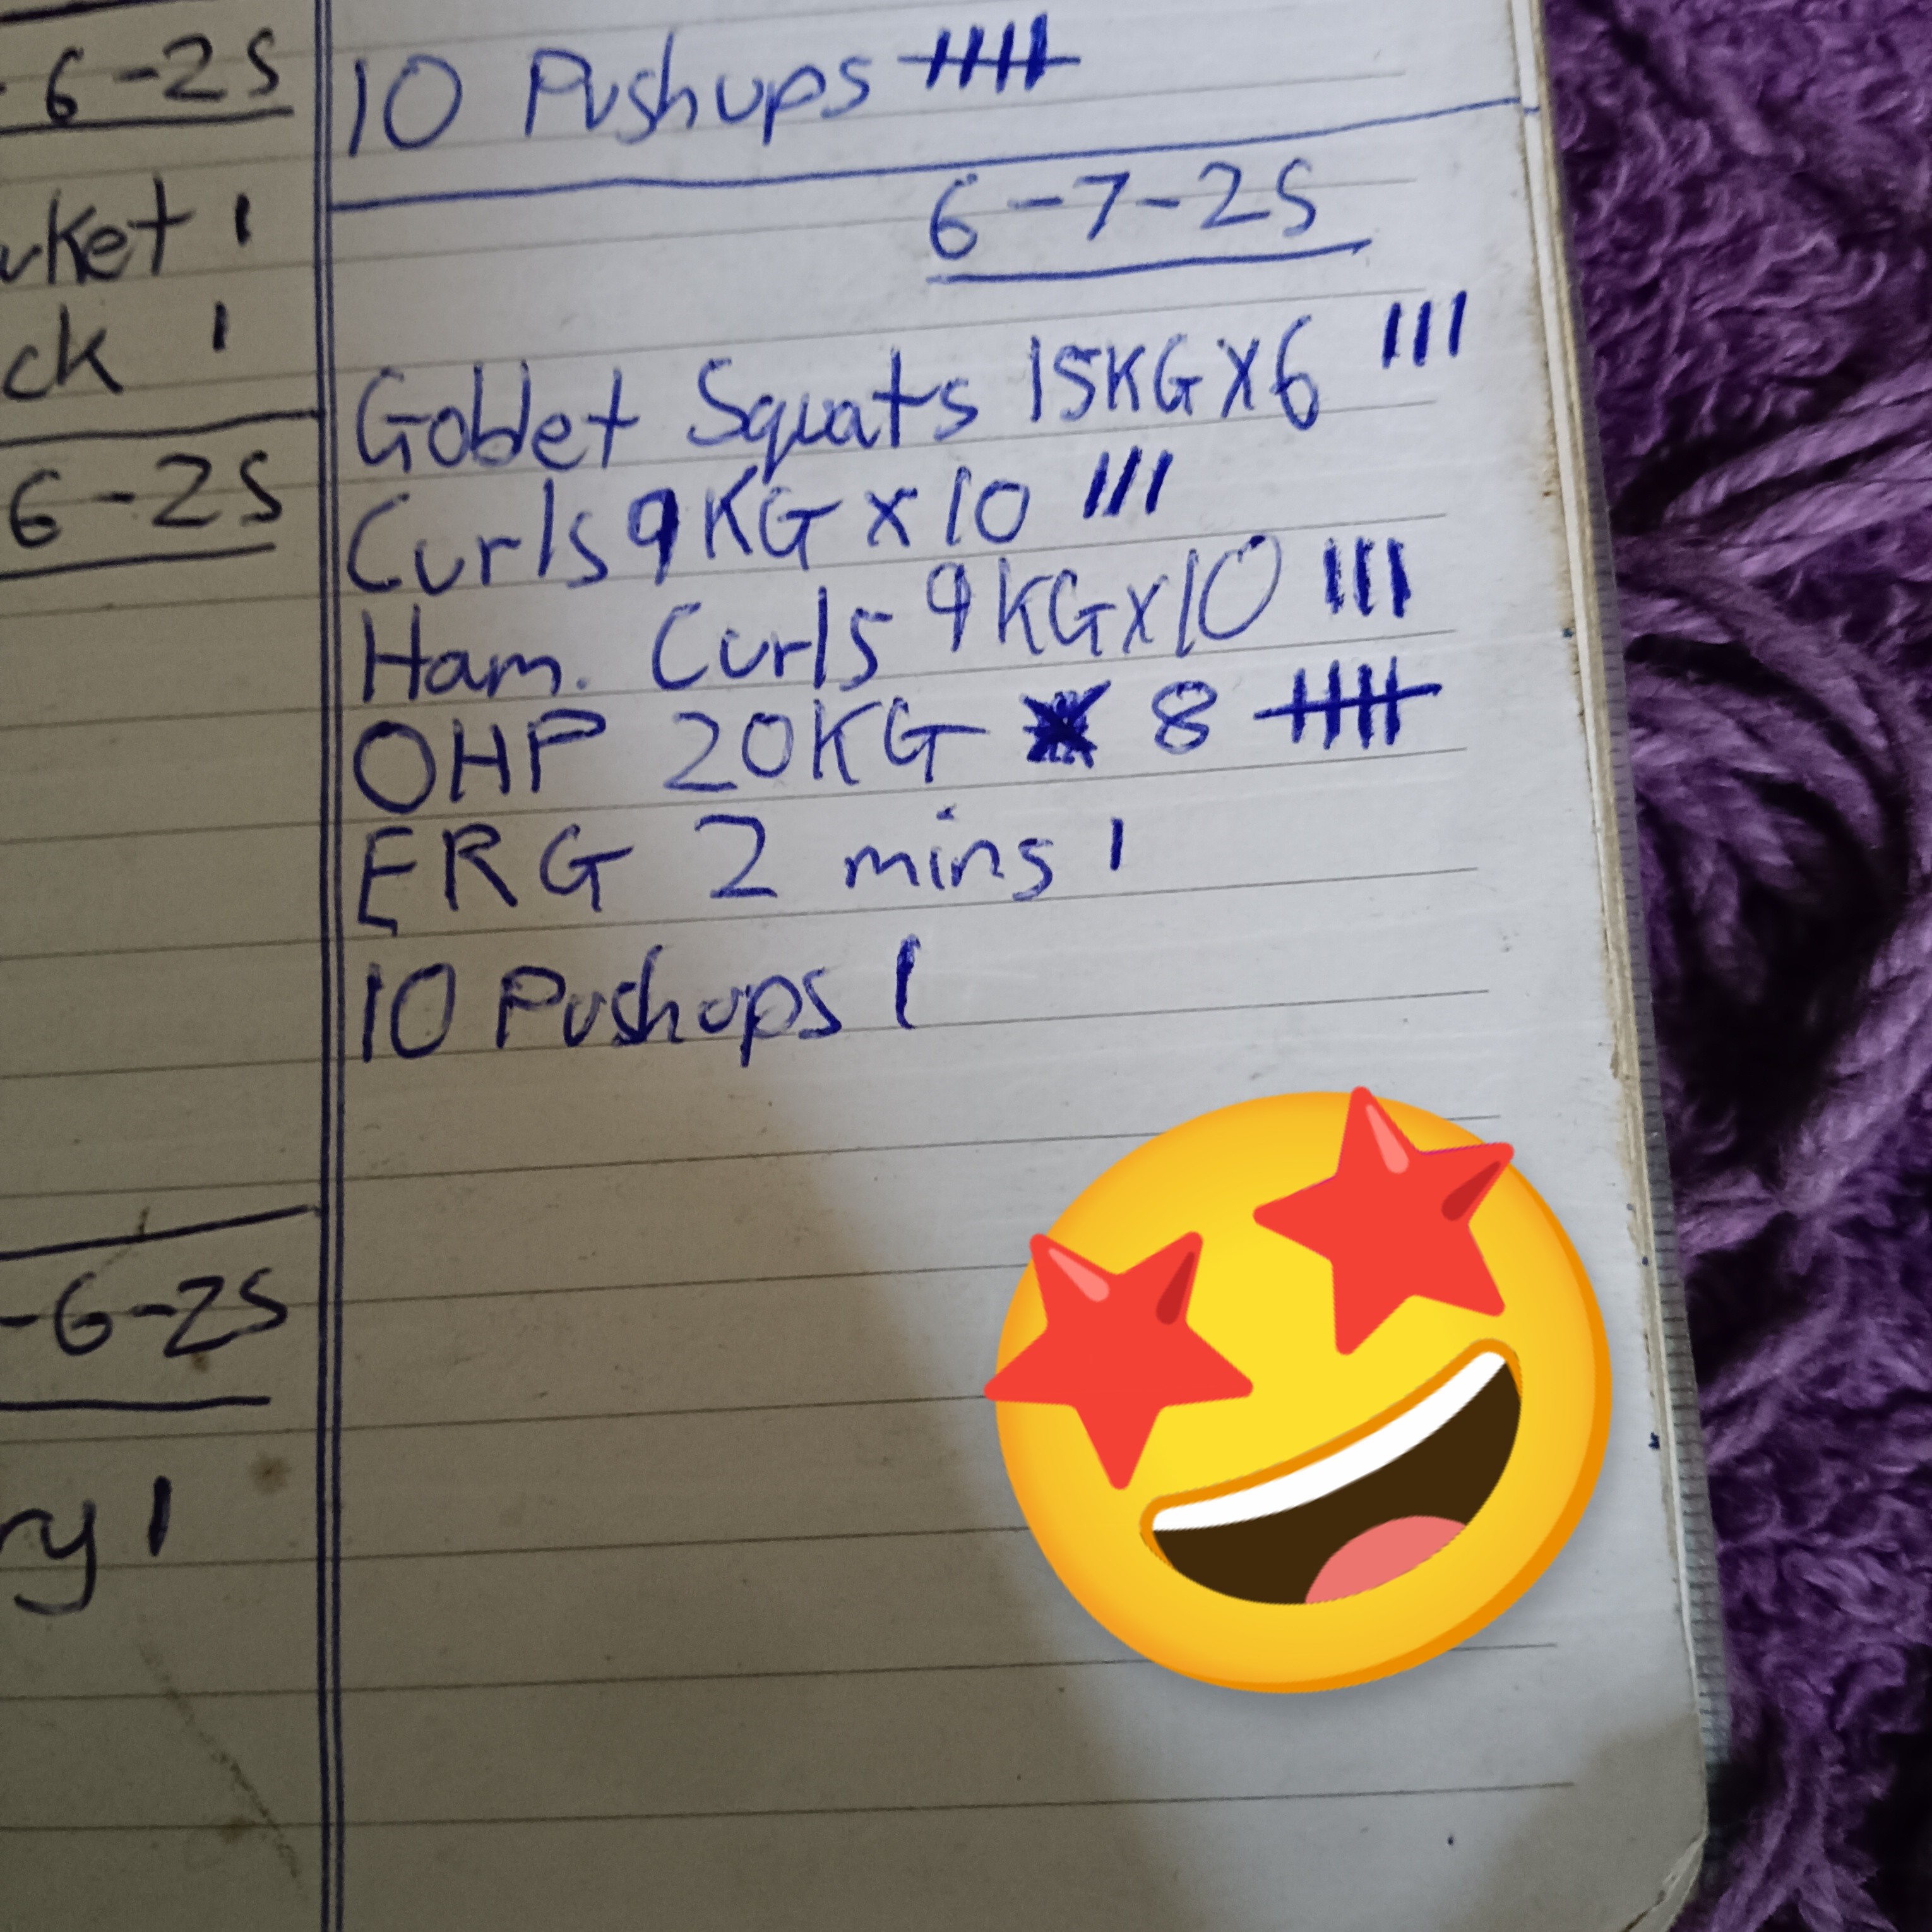 6-25
uket I
ck I
6-25
-6-25
ry I
10 Pushups 𝍸
6-7-25
Goblet Squats 15KG X 6 III
Curls 9KG x 10 III
Ham. Curls 9KG x 10 III
OHP 20KG X 8 𝍸
ERG 2 mins I
10 Pushups I